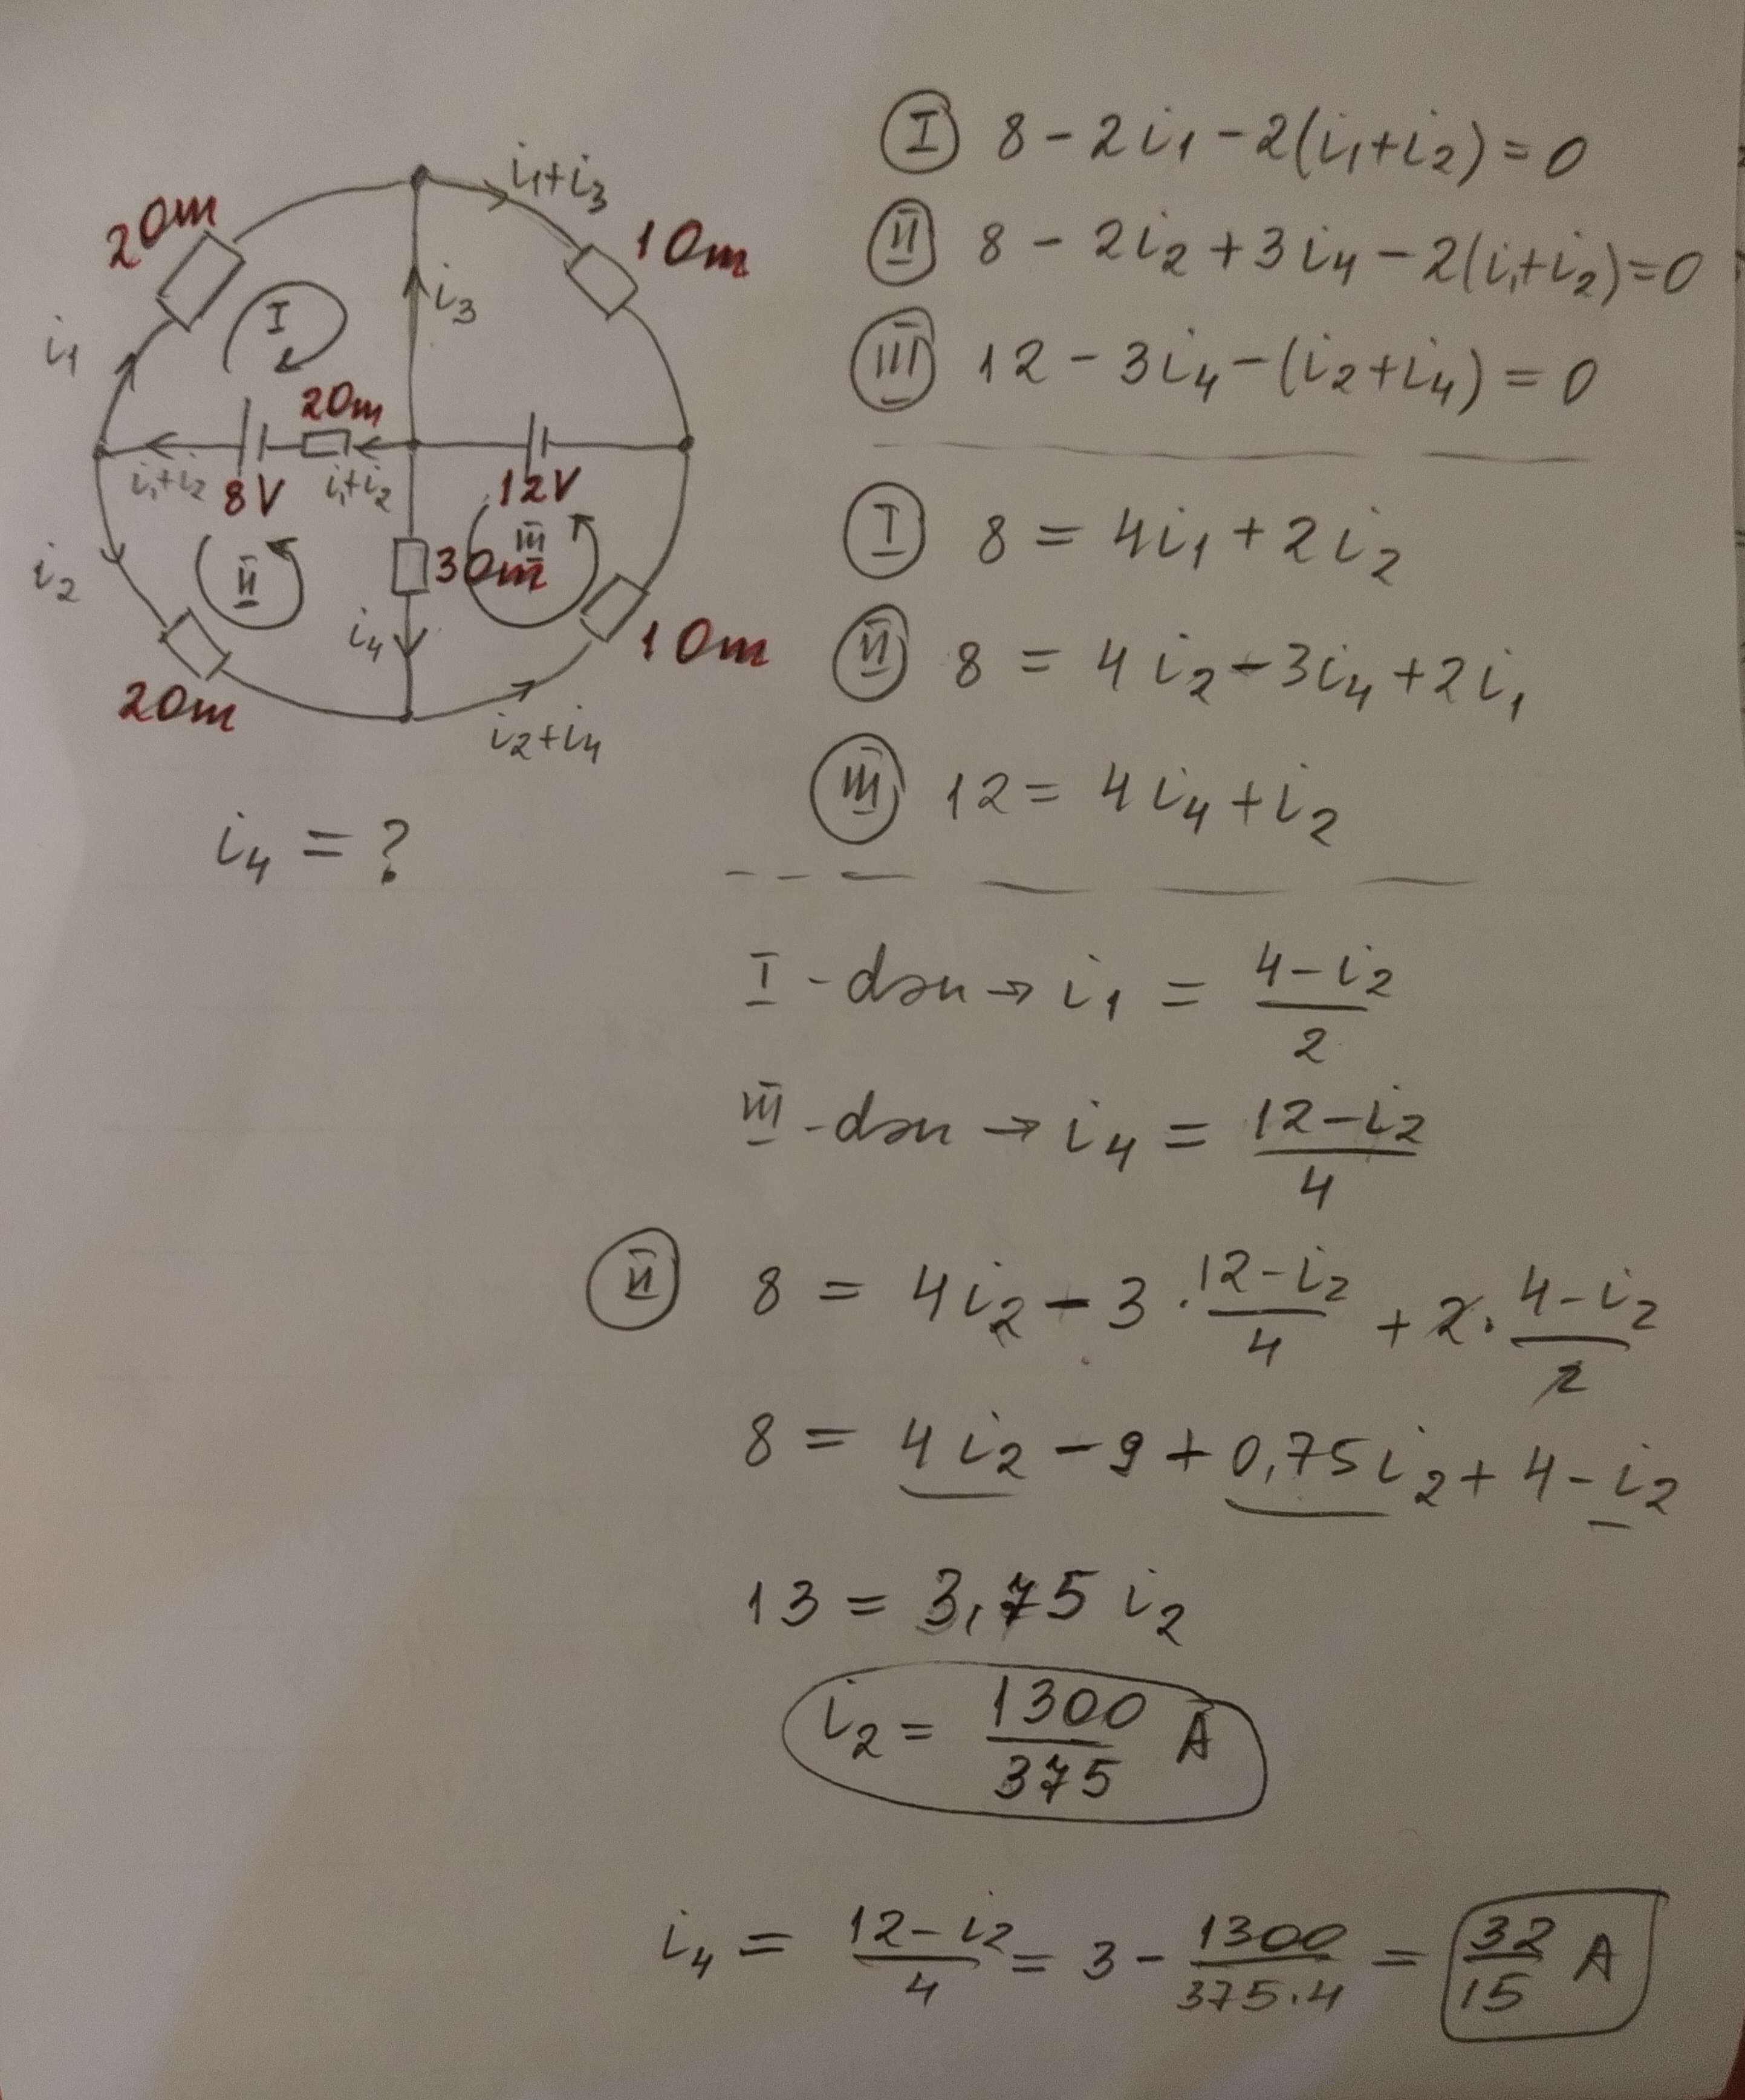 2 Om
i₁+i₃
1 Om
i₁
I
i₃
2 Om
i₁+i₂
8 V
i₁+i₂
12 V
i₂
II
3 Om
III
i₄
1 Om
2 Om
i₂+i₄
i₄ = ?
I 8 - 2i₁ - 2(i₁+i₂) = 0
II 8 - 2i₂ + 3i₄ - 2(i₁+i₂) = 0
III 12 - 3i₄ - (i₂+i₄) = 0
I 8 = 4i₁ + 2i₂
II 8 = 4i₂ - 3i₄ + 2i₁
III 12 = 4i₄ + i₂
I - dən → i₁ = (4-i₂)/2
III - dən → i₄ = (12-i₂)/4
II 8 = 4i₂ - 3 · (12-i₂)/4 + 2 · (4-i₂)/2
8 = 4i₂ - 9 + 0,75i₂ + 4 - i₂
13 = 3,75 i₂
i₂ = 1300/375 A
i₄ = (12-i₂)/4 = 3 - 1300/(375·4) = 32/15 A